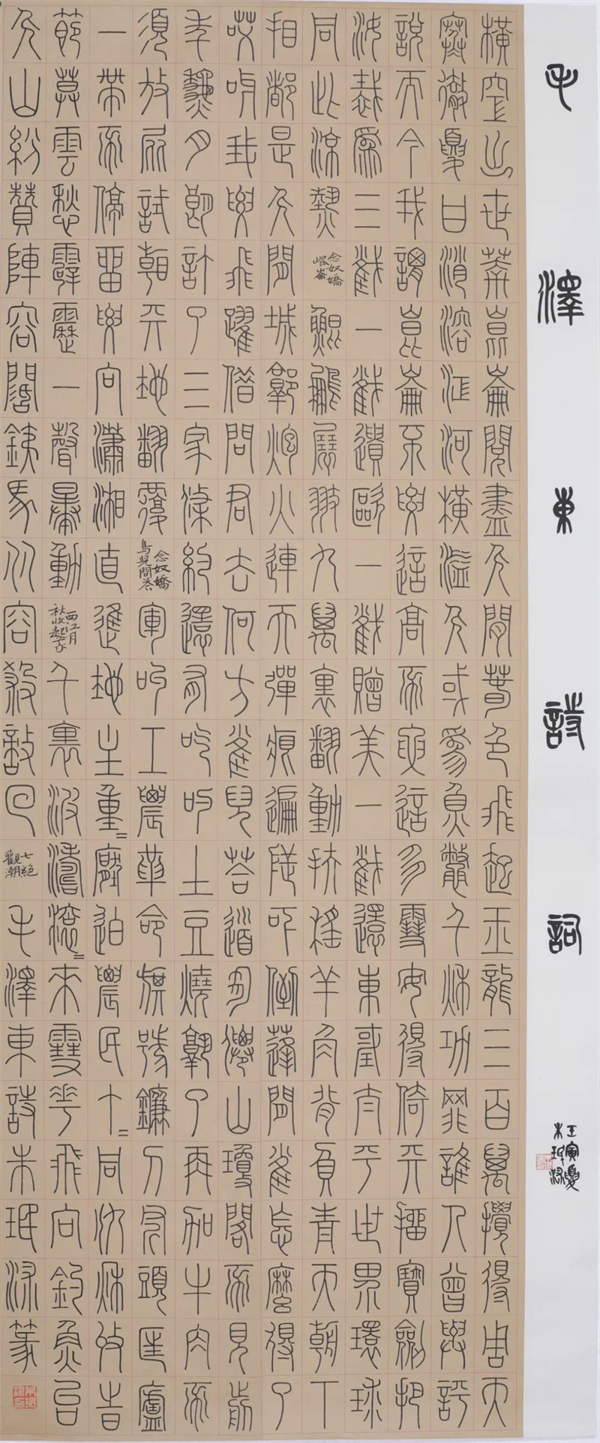 毛澤東詩詞
壬寅夏
朱珉渌
橫空出世莽崑崙閱盡人間春色飛起玉龍三百萬攪得周天
寒徹夏日消溶江河橫溢人或為魚鱉千秋功罪誰人曾與評
說而今我謂崑崙不要這高不要這多雪安得倚天抽寶劍把
汝裁為三截一截遺歐一截贈美一截還東國太平世界環球
同此涼熱念奴嬌崑崙鯤鵬展翅九萬里翻動扶搖羊角背負青天朝下
看都是人間城郭炮火連天彈痕遍地嚇倒蓬間雀怎麼得了
哎呀我要飛躍借問君去何方雀兒答道有仙山瓊閣不見前
年秋月朗訂了三家條約還有吃的土豆燒熟了再加牛肉不
須放屁試看天地翻覆念奴嬌鳥兒問答軍叫工農革命旗號鐮刀斧頭匡廬
一帶不停留要向瀟湘直進地主重〻壓迫農民个〻同仇秋收時
節暮雲愁霹靂一聲暴動西江月秋收起義千里波濤滾〻來雪花飛向釣魚台
人山紛贊陣容闊鐵馬從容殺敵回七絕觀潮毛澤東詩朱珉渌篆